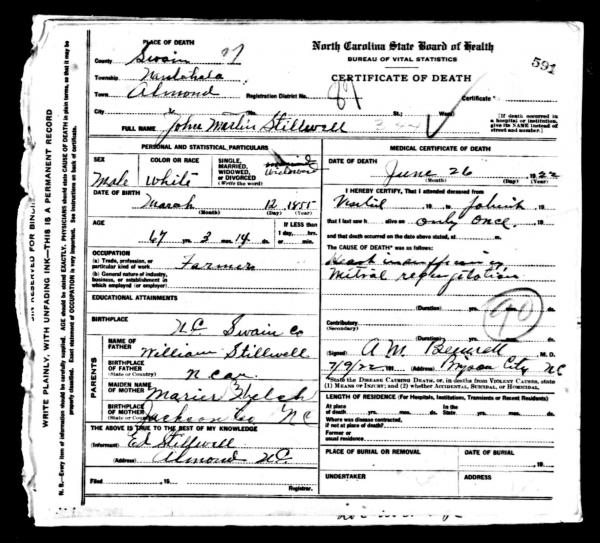 North Carolina State Board of Health
BUREAU OF VITAL STATISTICS
CERTIFICATE OF DEATH
591
PLACE OF DEATH
County Swain
Township Nantahala
Town Almond
Registration District No. 87
Certificate
City No. St.; Ward)
[If death occurred in a hospital or institution, give its NAME instead of street and number.]
FULL NAME John Martin Stillwell
PERSONAL AND STATISTICAL PARTICULARS
SEX
Male
COLOR OR RACE
White
SINGLE, MARRIED, WIDOWED, or DIVORCED
(Write the word)
Widowed
DATE OF BIRTH
March 12 1855
(Month) (Day) (Year)
AGE
67 yrs. 3 mos. 14 ds.
If LESS than 1 day, hrs. or min.
OCCUPATION
(a) Trade, profession, or particular kind of work Farmer
(b) General nature of industry, business, or establishment in which employed (or employer)
EDUCATIONAL ATTAINMENTS
BIRTHPLACE
N.C. Swain Co
PARENTS
NAME OF FATHER William Stillwell
BIRTHPLACE OF FATHER
(State or Country) N Car
MAIDEN NAME OF MOTHER
BIRTHPLACE OF MOTHER
(State or Country) Jackson Co NC
THE ABOVE IS TRUE TO THE BEST OF MY KNOWLEDGE
(Informant) Ed Stillwell
(Address) Almond N.C.
Filed , 19
Registrar.
MEDICAL CERTIFICATE OF DEATH
DATE OF DEATH
June 26 1922
(Month) (Day) (Year)
I HEREBY CERTIFY, That I attended deceased from
, 19 , to , 19
that I last saw h alive on only once, 19
and that death occurred on the date above stated, at m.
The CAUSE OF DEATH* was as follows:
Heart insufficiency
Mitral regurgitation
(Duration) yrs. mos. ds.
90
Contributory
(Secondary)
(Duration) yrs. mos. ds.
(Signed) A M Bennett M. D.
7/9/22, 19 (Address) Bryson City NC
*State the DISEASE CAUSING DEATH, or, in deaths from VIOLENT CAUSES, state (1) MEANS OF INJURY; and (2) whether ACCIDENTAL, SUICIDAL, or HOMICIDAL.
LENGTH OF RESIDENCE (For Hospitals, Institutions, Transients or Recent Residents)
At place of death yrs. mos. ds. In the State yrs. mos. ds.
Where was disease contracted, if not at place of death?
Former or usual residence
PLACE OF BURIAL OR REMOVAL
DATE OF BURIAL
, 19
UNDERTAKER
ADDRESS
WRITE PLAINLY, WITH UNFADING INK—THIS IS A PERMANENT RECORD
N. B.—Every item of information should be carefully supplied. AGE should be stated EXACTLY. PHYSICIANS should state CAUSE OF DEATH in plain terms, so that it may be properly classified. Exact statement of OCCUPATION is very important. See instructions on back of certificate.